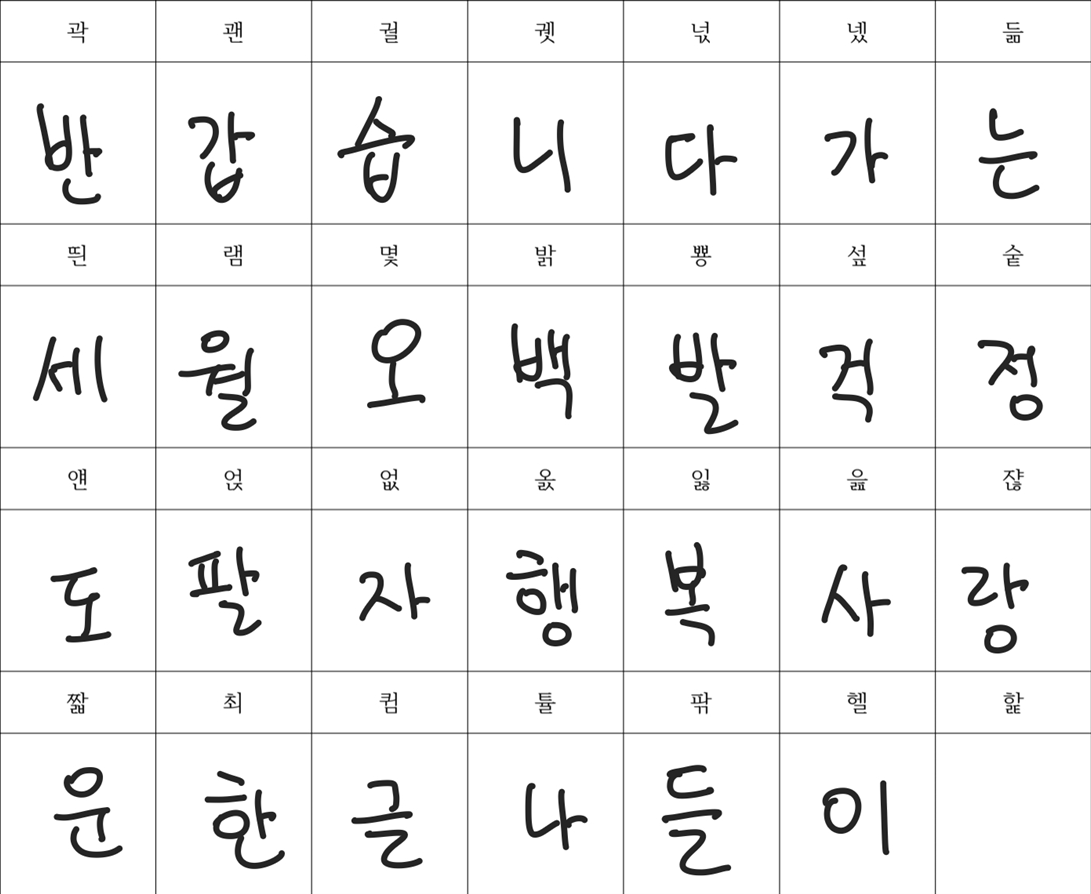 곽 괜 궐 궷 넋 넸 듦
반 갑 습 니 다 가 는
띈 램 몇 밝 뽕 섶 숱
세 월 오 백 발 걱 정
얜 얹 없 옰 잃 읊 쟎
도 팔 자 행 복 사 랑
짧 최 컴 튤 팎 헬 핥
운 한 글 나 들 이